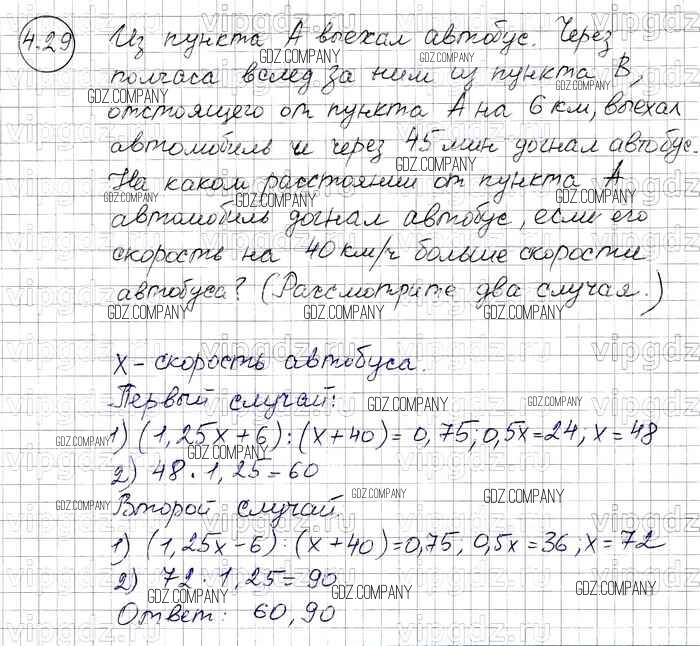 4.29 Из пункта А выехал автобус. Через
полчаса вслед за ним из пункта В,
отстоящего от пункта А на 6 км, выехал
автомобиль и через 45 мин догнал автобус.
На каком расстоянии от пункта А
автомобиль догнал автобус, если его
скорость на 40 км/ч больше скорости
автобуса? (Рассмотрите два случая.)
х - скорость автобуса.
Первый случай:
1) (1,25х+6):(х+40)=0,75; 0,5х=24, х=48
2) 48·1,25=60
Второй случай.
1) (1,25х-6):(х+40)=0,75, 0,5х=36, х=72
2) 72·1,25=90
Ответ: 60, 90
GDZ.COMPANY
vipgdz.ru